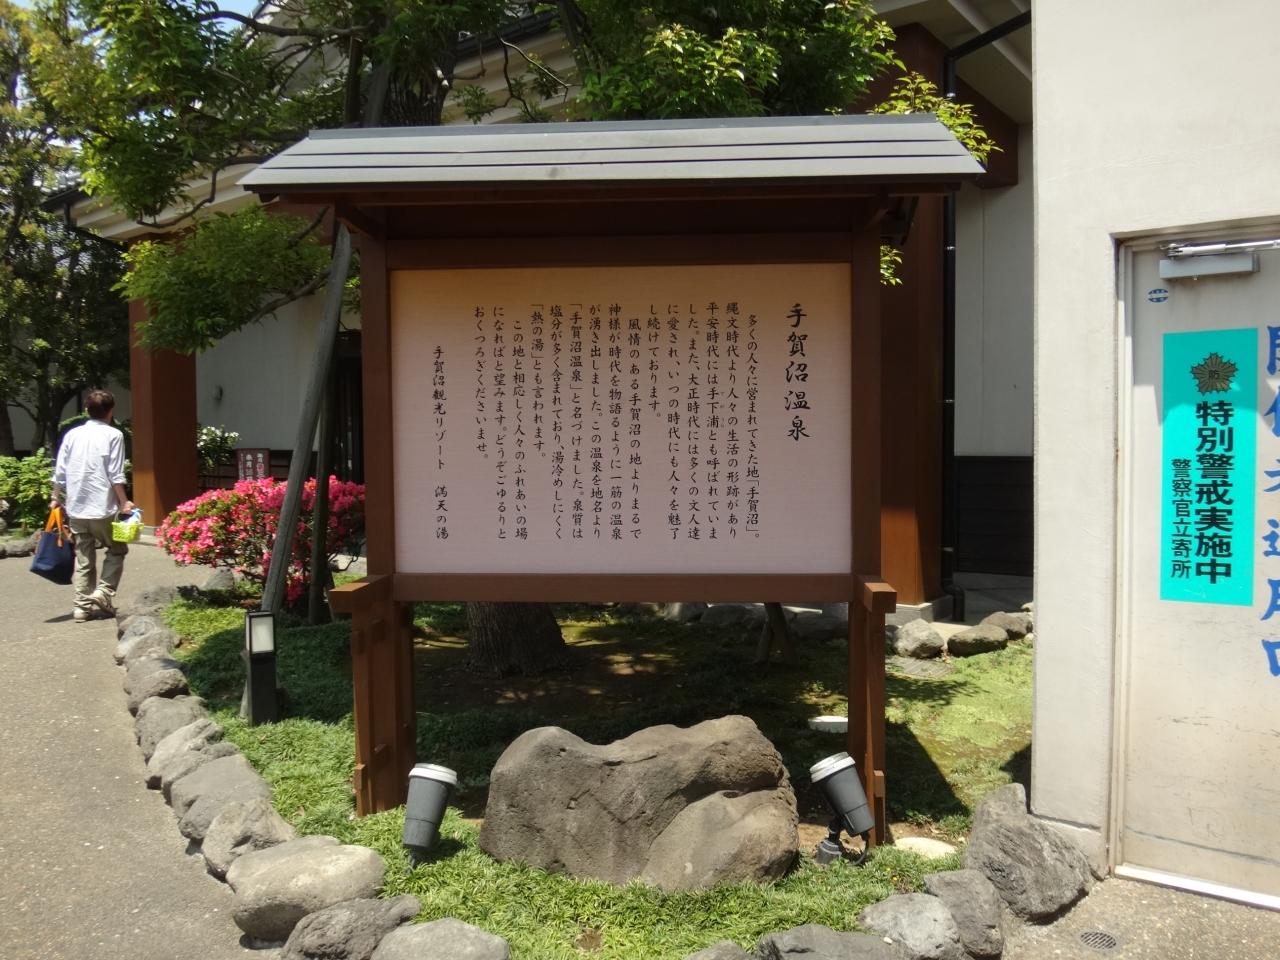 手賀沼温泉
多くの人々に営まれてきた地「手賀沼」。
縄文時代より人々の生活の形跡があり
平安時代には手下浦とも呼ばれていま
した。また、大正時代には多くの文人達
に愛され、いつの時代にも人々を魅了
し続けております。
風情のある手賀沼の地よりまるで
神様が時代を物語るように一筋の温泉
が湧き出しました。この温泉を地名より
「手賀沼温泉」と名づけました。泉質は
塩分が多く含まれており、湯冷めしにくく
「熱の湯」とも言われます。
この地と相応しく人々のふれあいの場
になればと望みます。どうぞごゆるりと
おくつろぎくださいませ。
手賀沼観光リゾート 満天の湯
防
特別警戒実施中
警察官立寄所